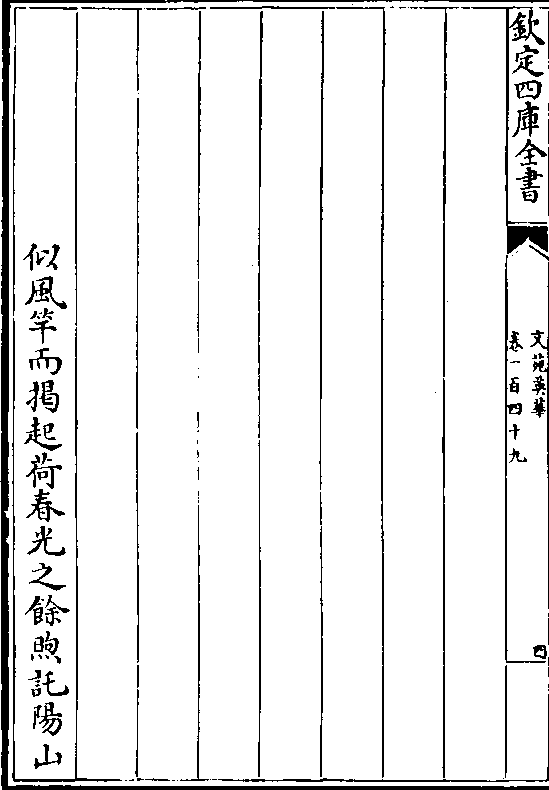 欽定四庫全書
文苑英華
卷一百四十九
四
似風竿而揭起荷春光之餘煦託陽山